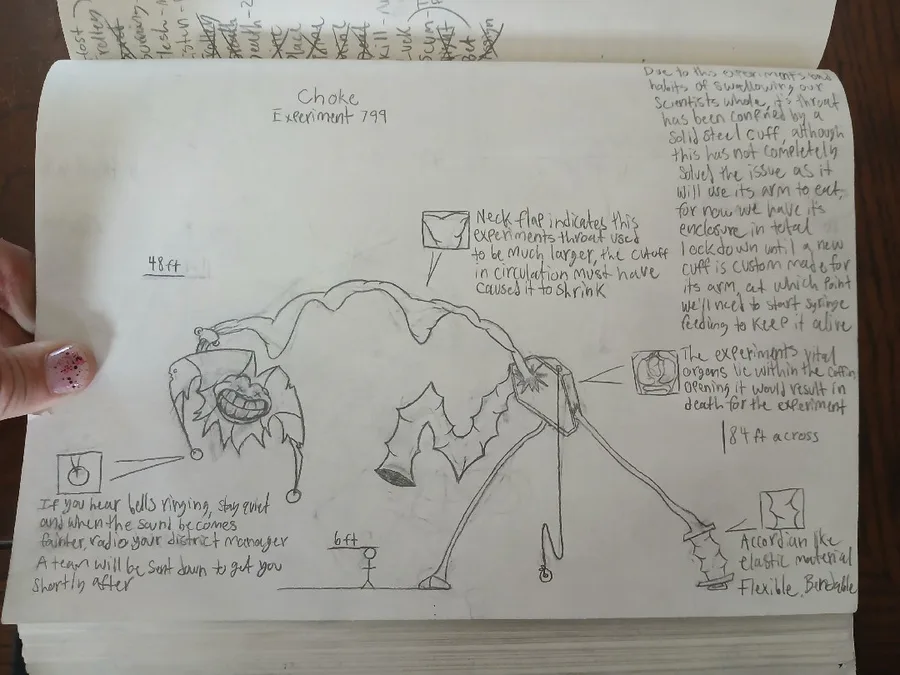 Choke
Experiment 799
Due to this experiments bad
habits of swallowing our
scientists whole, it's throat
has been confined by a
solid steel cuff, although
this has not completely
solved the issue as it
will use its arm to eat,
for now we have it's
enclosure in total
lockdown until a new
cuff is custom made for
its arm, at which point
we'll need to start syringe
feeding to keep it alive
Neck flap indicates this
experiments throat used
to be much larger, the cutoff
in circulation must have
caused it to shrink
48ft
The experiments vital
organs lie within the coffin
opening it would result in
death for the experiment
84 ft across
If you hear bells ringing, stay quiet
and when the sound becomes
fainter, radio your district manager
A team will be sent down to get you
shortly after
6ft
Accordian like
elastic material
Flexible, Bendable